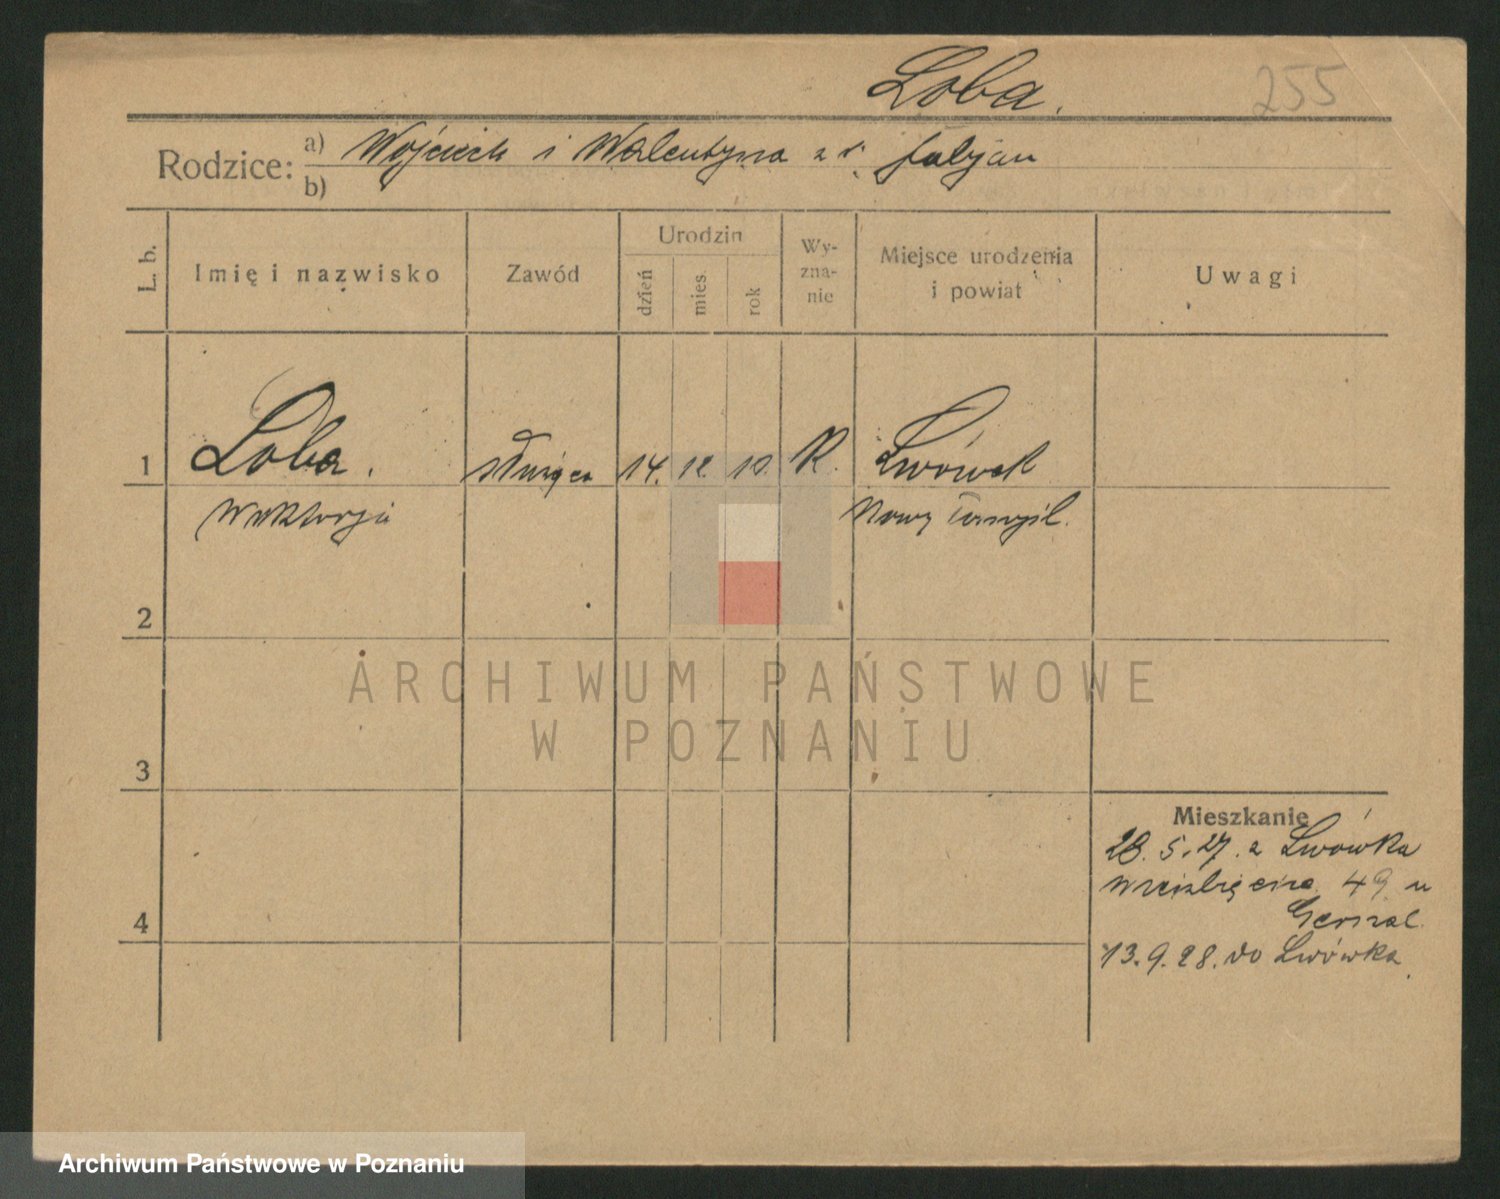 Loba.
255
Rodzice:
a) Wojciech i Walentyna z d. Fabjan
b)
L. b.
Imię i nazwisko
Zawód
Urodzin
dzień
mies.
rok
Wy-
zna-
nie
Miejsce urodzenia
i powiat
Uwagi
1
Loba.
Wiktorja
służąca
14. 12. 10.
R.
Lwówek
Nowy Tomyśl.
2
3
4
Mieszkanie
28. 5. 27. z Lwówka
Wierzbięcice 49 u
13. 9. 28. do Lwówka.
ARCHIWUM PAŃSTWOWE
W POZNANIU
Archiwum Państwowe w Poznaniu